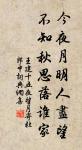 今夜月明人盡望
不知秋思落誰家
王建十五夜望月寄杜
郎中詩典潤書